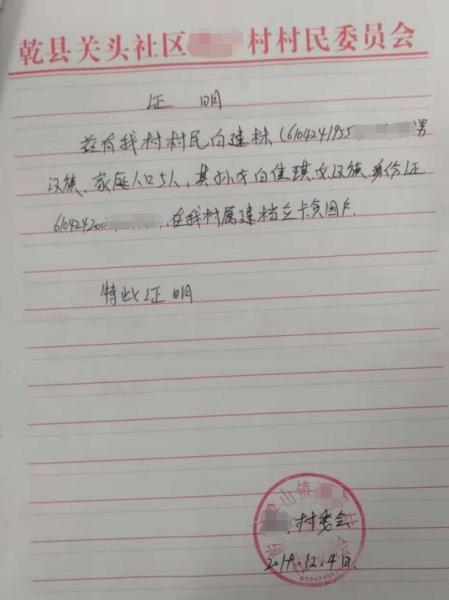 乾县关头社区 村村民委员会
证 明
兹有我村村民向建林(6104241955 男
汉族、家庭人口5人,其孙女向佳琪 女 汉族 身份证
610424200 ,在我村属建档立卡贫困户.
特此证明
山镇
村委会
2019.12.4日.